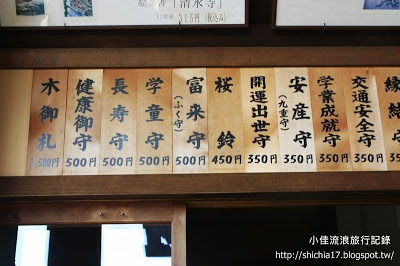 「清水寺」
315円(税込み)
木御札
500円
健康御守
500円
長寿守
500円
学童守
500円
富来守
(ふく守)
500円
桜鈴
450円
開運出世守
350円
安産守
(九重守)
350円
学業成就守
350円
交通安全守
350円
縁結守
小佳流浪旅行記錄
http://shichia17.blogspot.tw/